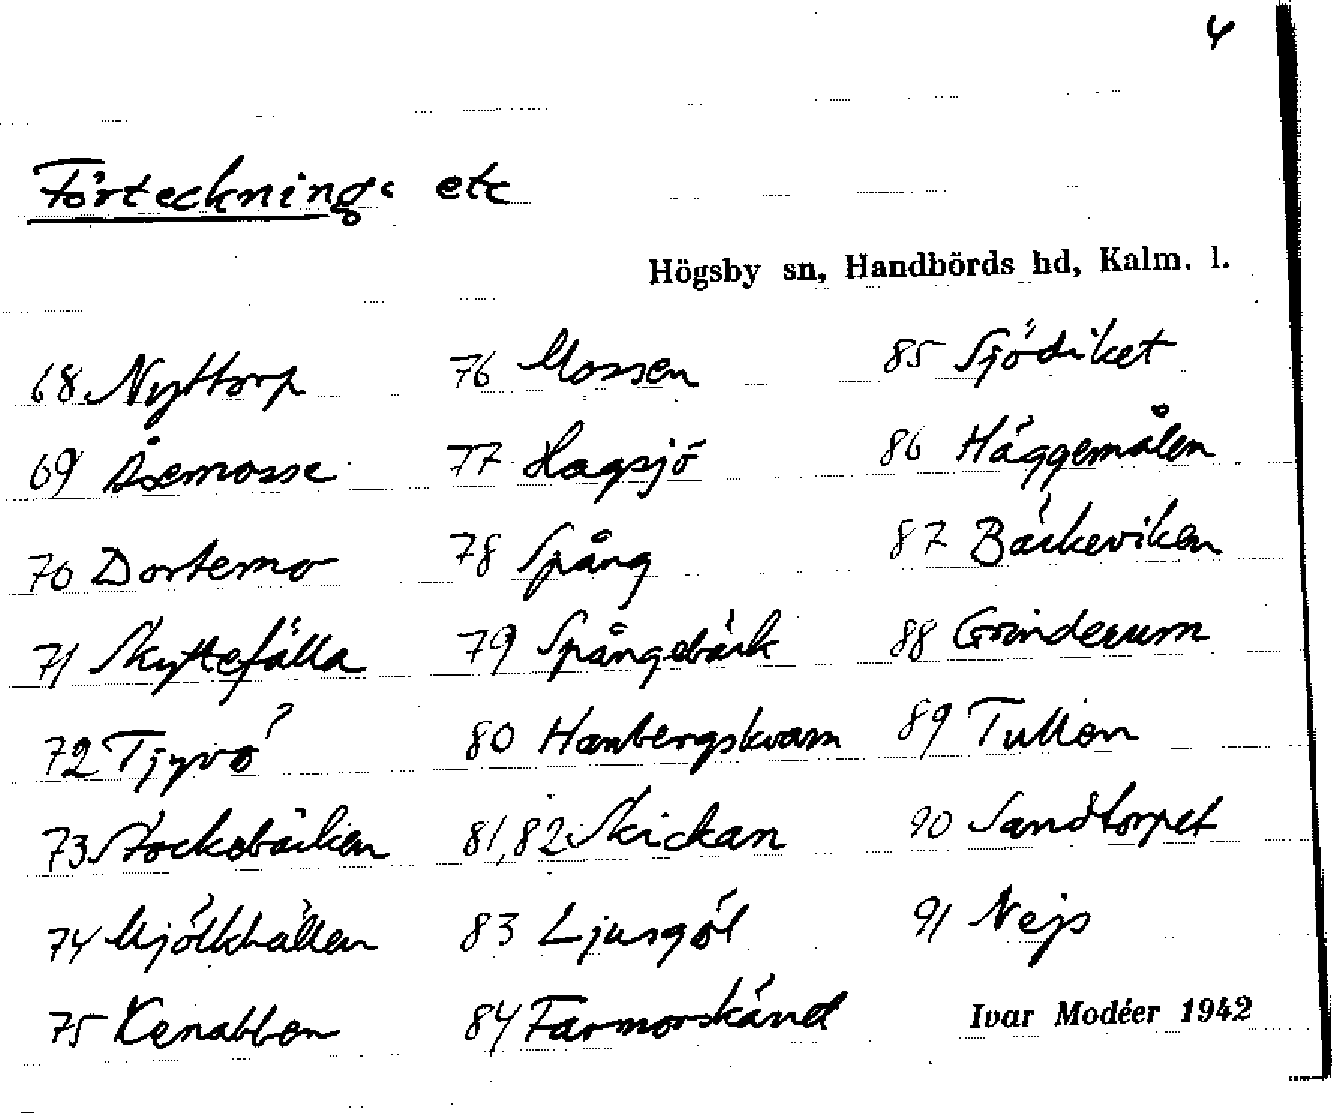 4
Förteckning: etc
Högsby sn, Handbörds hd, Kalm. l.
68 Nyttorp
69 Åsemosse
70 Dortemo
71 Skyttefälla
72 Tjyvö
73 Stockebäcken
74 Mjölkhällen
75 Kenabben
76 Mossen
77 Hagsjö
78 Spång
79 Spångebäck
80 Hanbergskvarn
81,82 Skickan
83 Ljusgöl
84 Farmorskänd
85 Sjödiket
86 Häggemålen
87 Bäckeviken
88 Grinderum
89 Tullen
90 Sandtorpet
91 Nejs
Ivar Modéer 1942